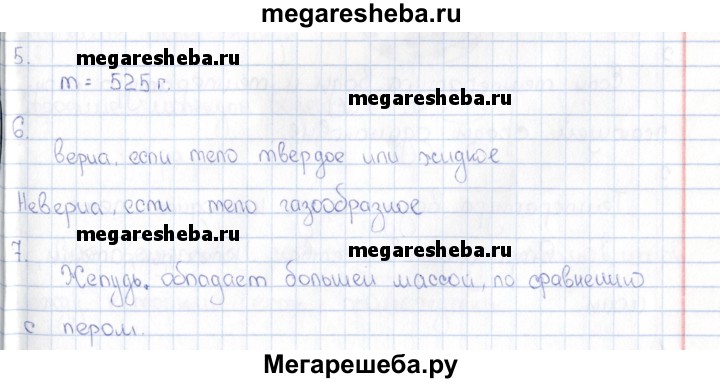 megaresheba.ru
5.
megaresheba.ru
m = 525 г.
megaresheba.ru
6.
верна, если тело твердое или жидкое
Неверна, если тело газообразное
7.
megaresheba.ru
megaresheba.ru
Желудь, обладает большей массой, по сравнению
с пером.
Мегарешеба.ру